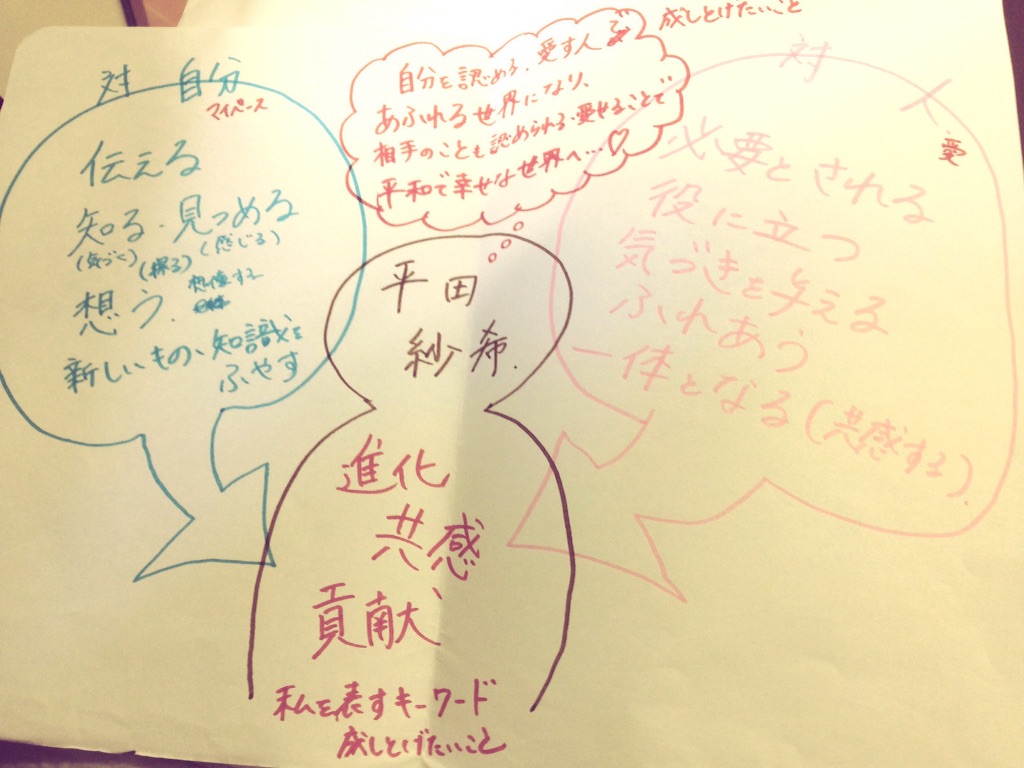 成しとげたいこと
自分を認める、愛す人で
あふれる世界になり、
相手のことも認められる・愛せることで
平和で幸せな世界へ…♡
対 自分
マイペース
伝える
知る・見つめる
(気づく) (探る) (感じる)
想う. 想像する
新しいもの、知識を
ふやす
対 人
愛
必要とされる
役に立つ
気づきを与える
ふれあう
一体となる(共感する).
平田
紗希.
進化
共感
貢献
私を表すキーワード
成しとげたいこと